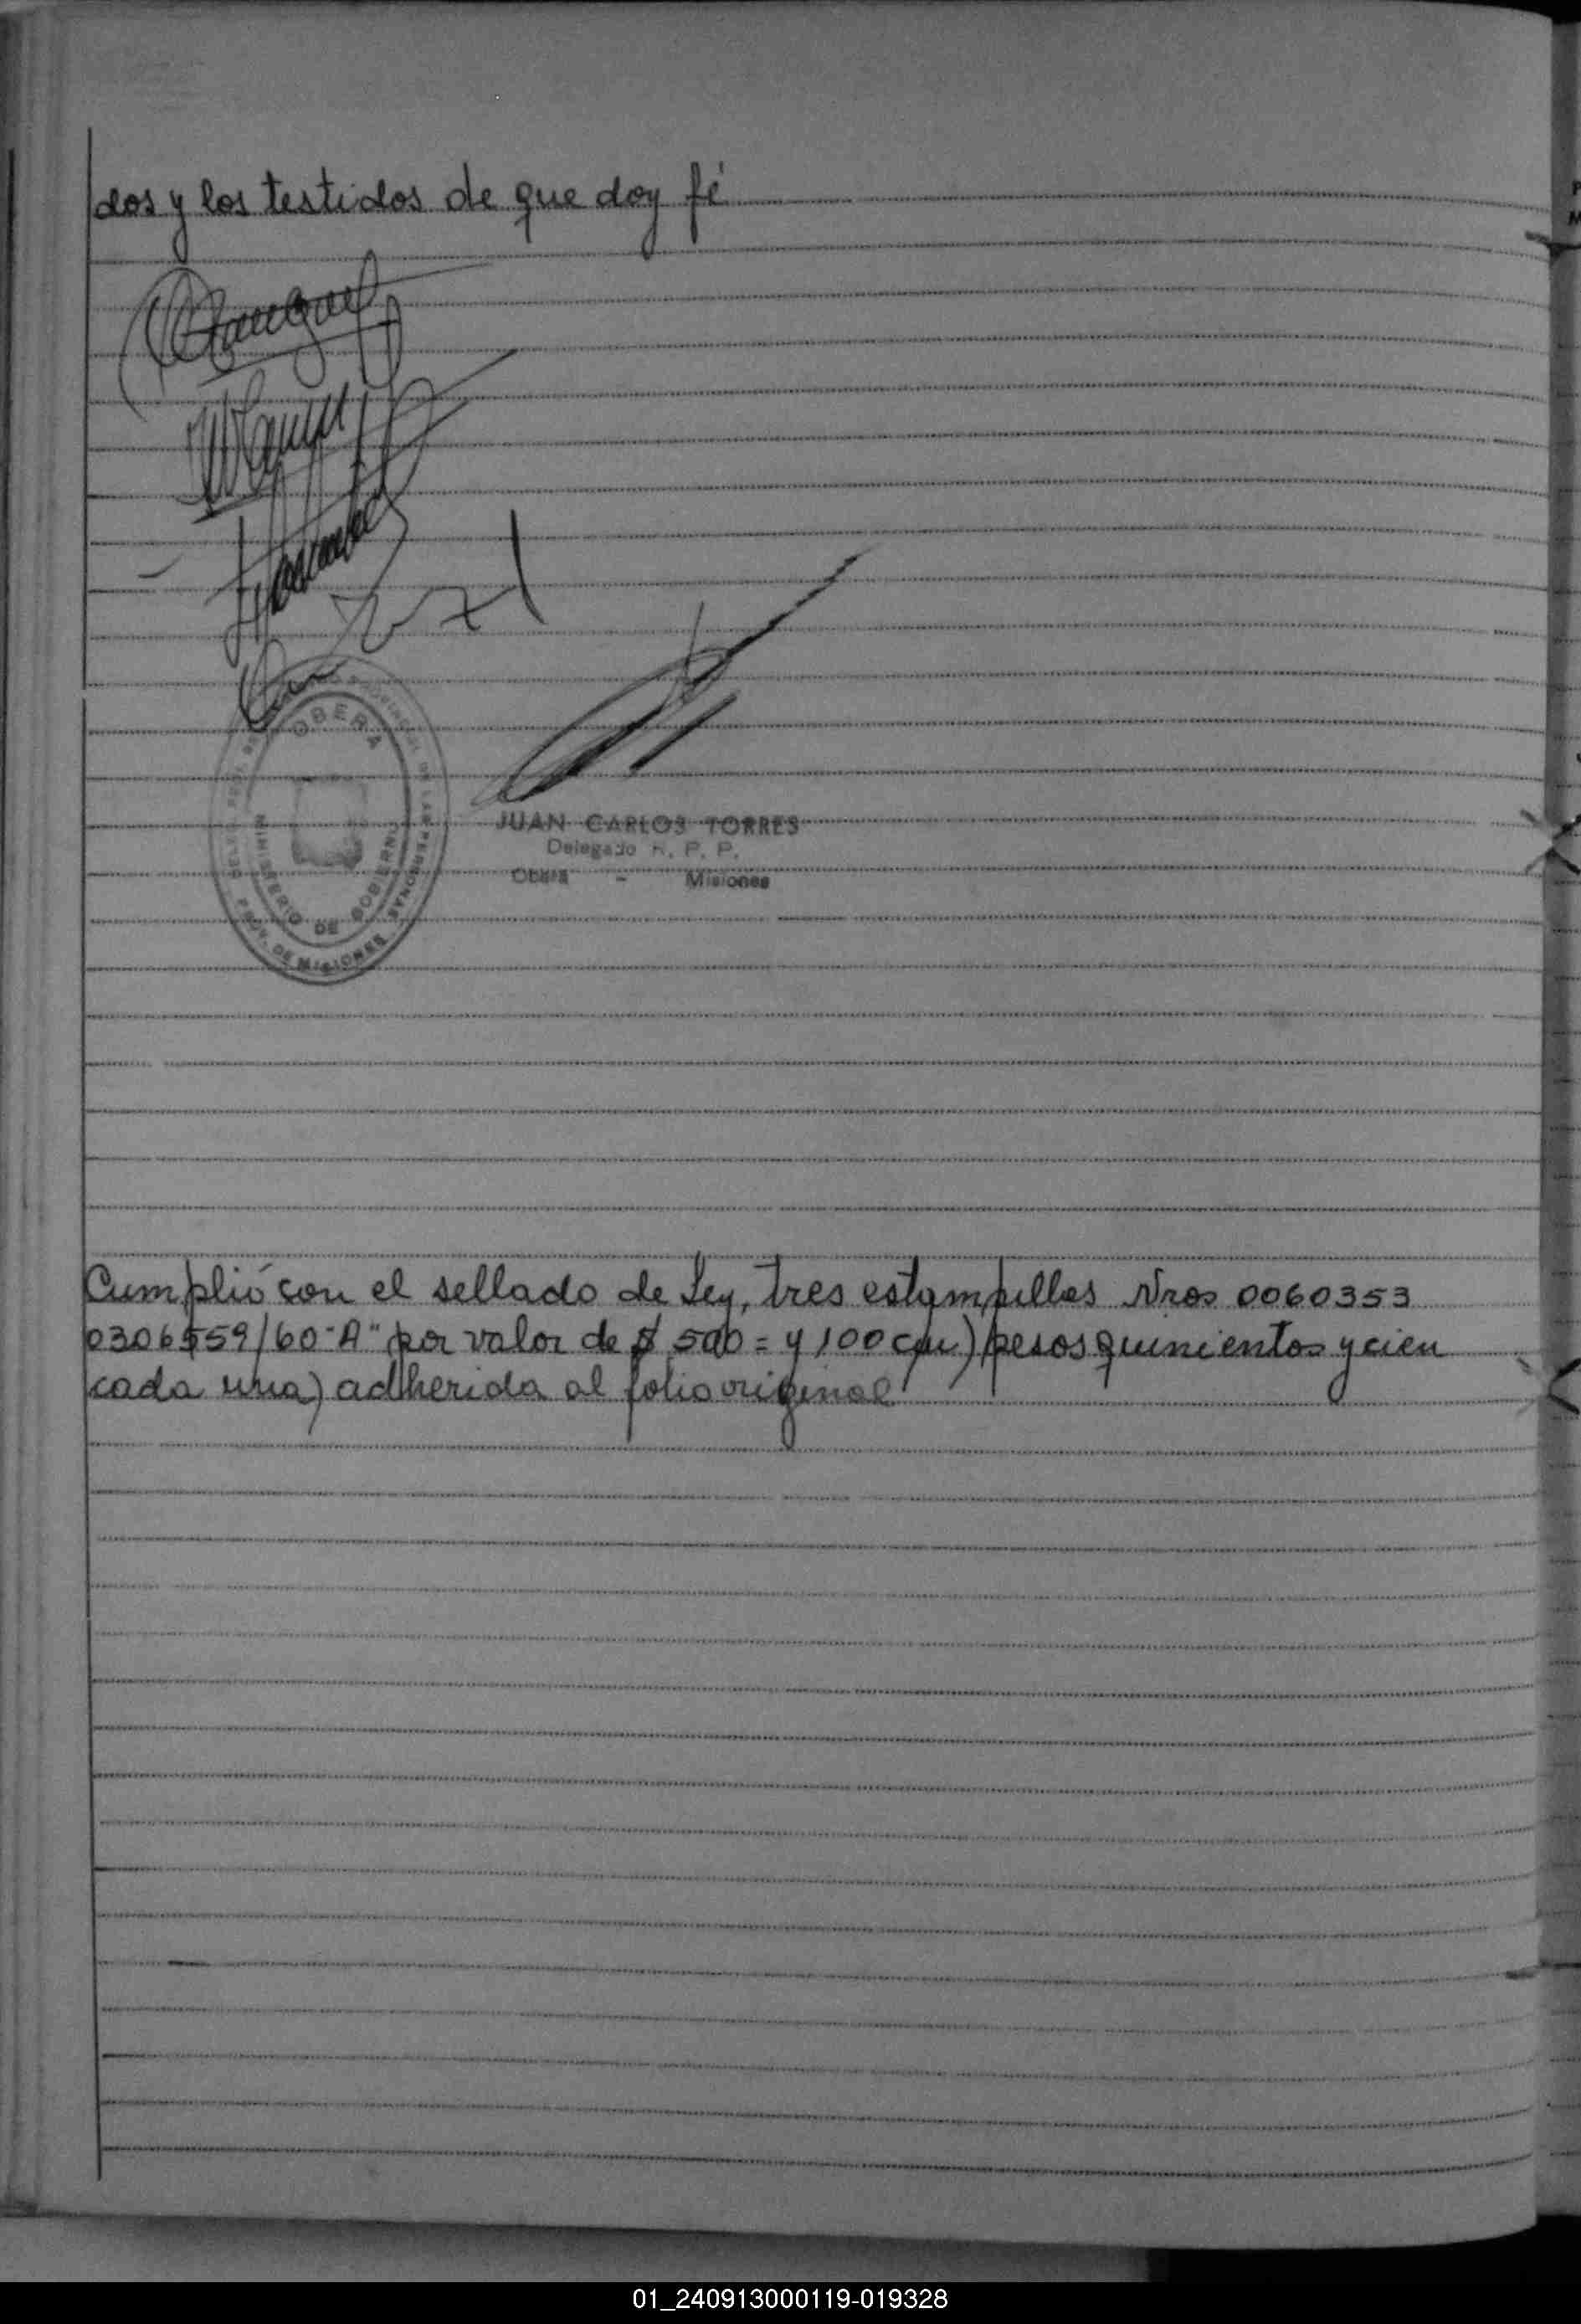 dos y los testidos de que doy fé
OBERA
MINISTERIO DE GOBIERNO
PROV. DE MISIONES
JUAN CARLOS TORRES
Delegado R. P. P.
Oberá - Misiones
Cumplió con el sellado de Ley, tres estampillas Nros 0060353
0306559/60 "A" por valor de $ 500 = y 100 c/u) pesos quinientos y cien
cada una) adherida al folio original
01_240913000119-019328